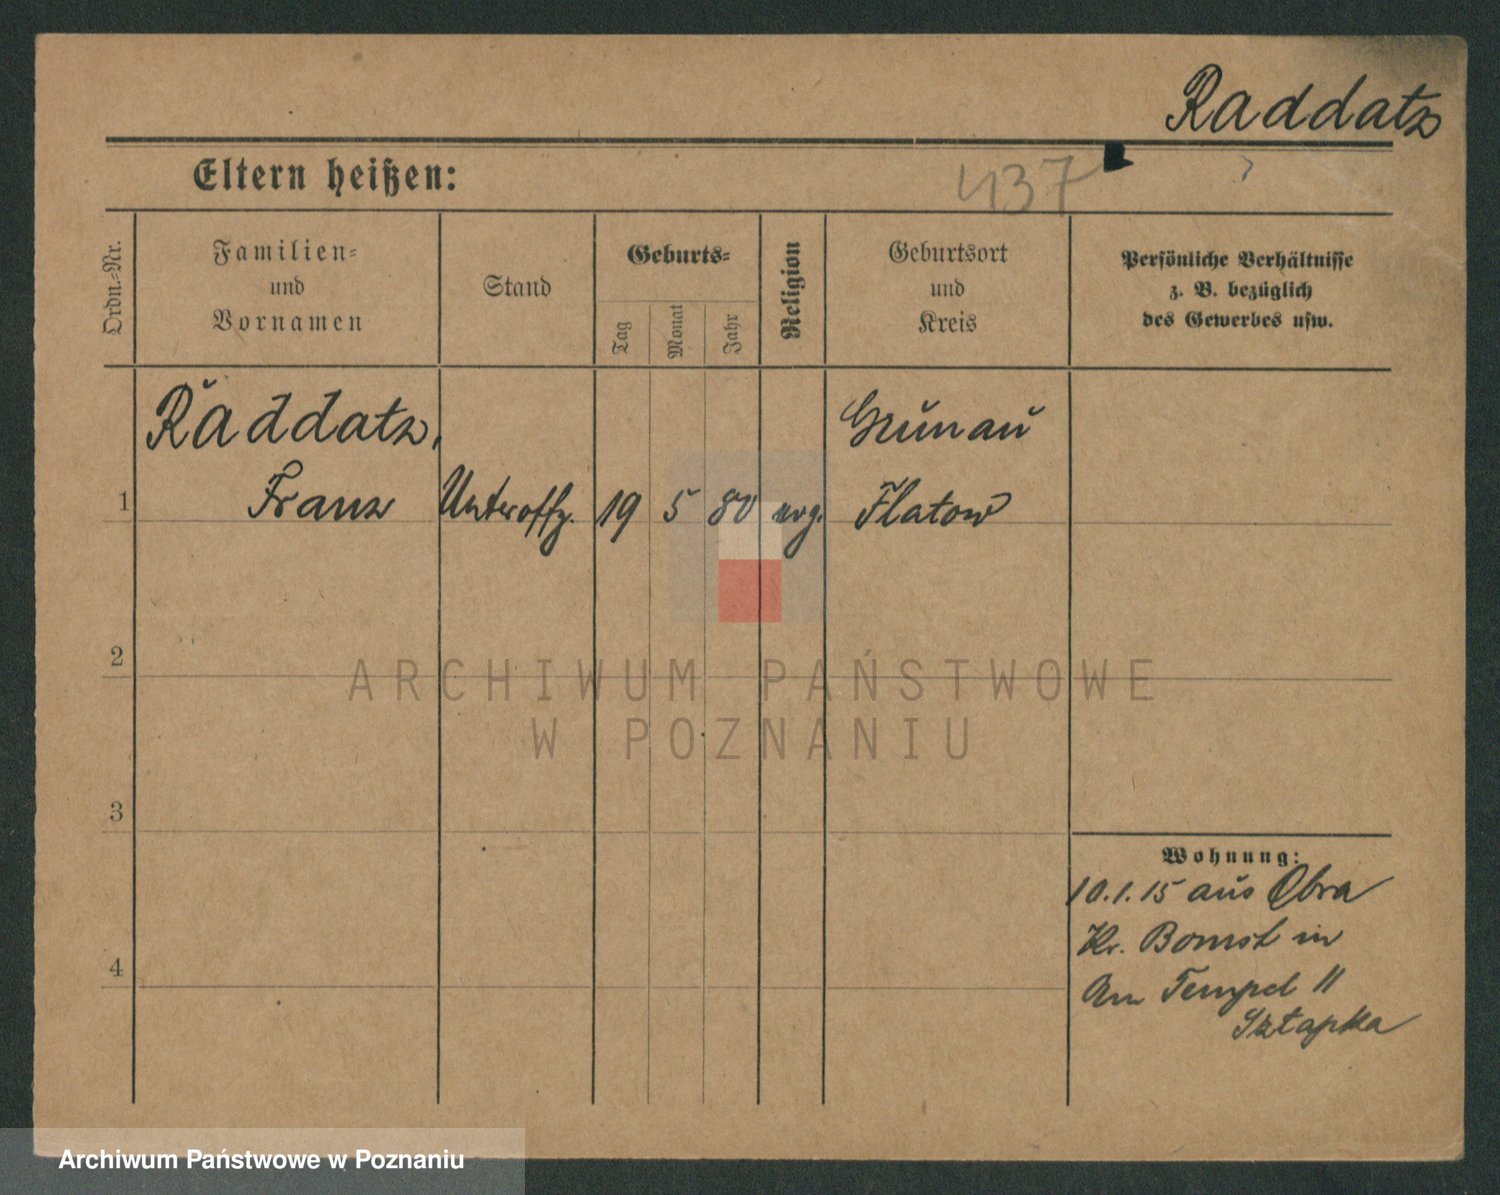 Raddatz
Eltern heißen:
437
Ordn.=Nr.
Familien=
und
Vornamen
Stand
Geburts=
Tag
Monat
Jahr
Religion
Geburtsort
und
Kreis
Persönliche Verhältnisse
z. B. bezüglich
des Gewerbes usw.
Raddatz,
Grunau
1 Franz Unteroffz. 19 5 80 evg. Flatow
2
3
4
Wohnung:
10.1.15 aus Obra
Kr. Bomst in
Am Tempel 11
Sztapka
ARCHIWUM PAŃSTWOWE
W POZNANIU
Archiwum Państwowe w Poznaniu